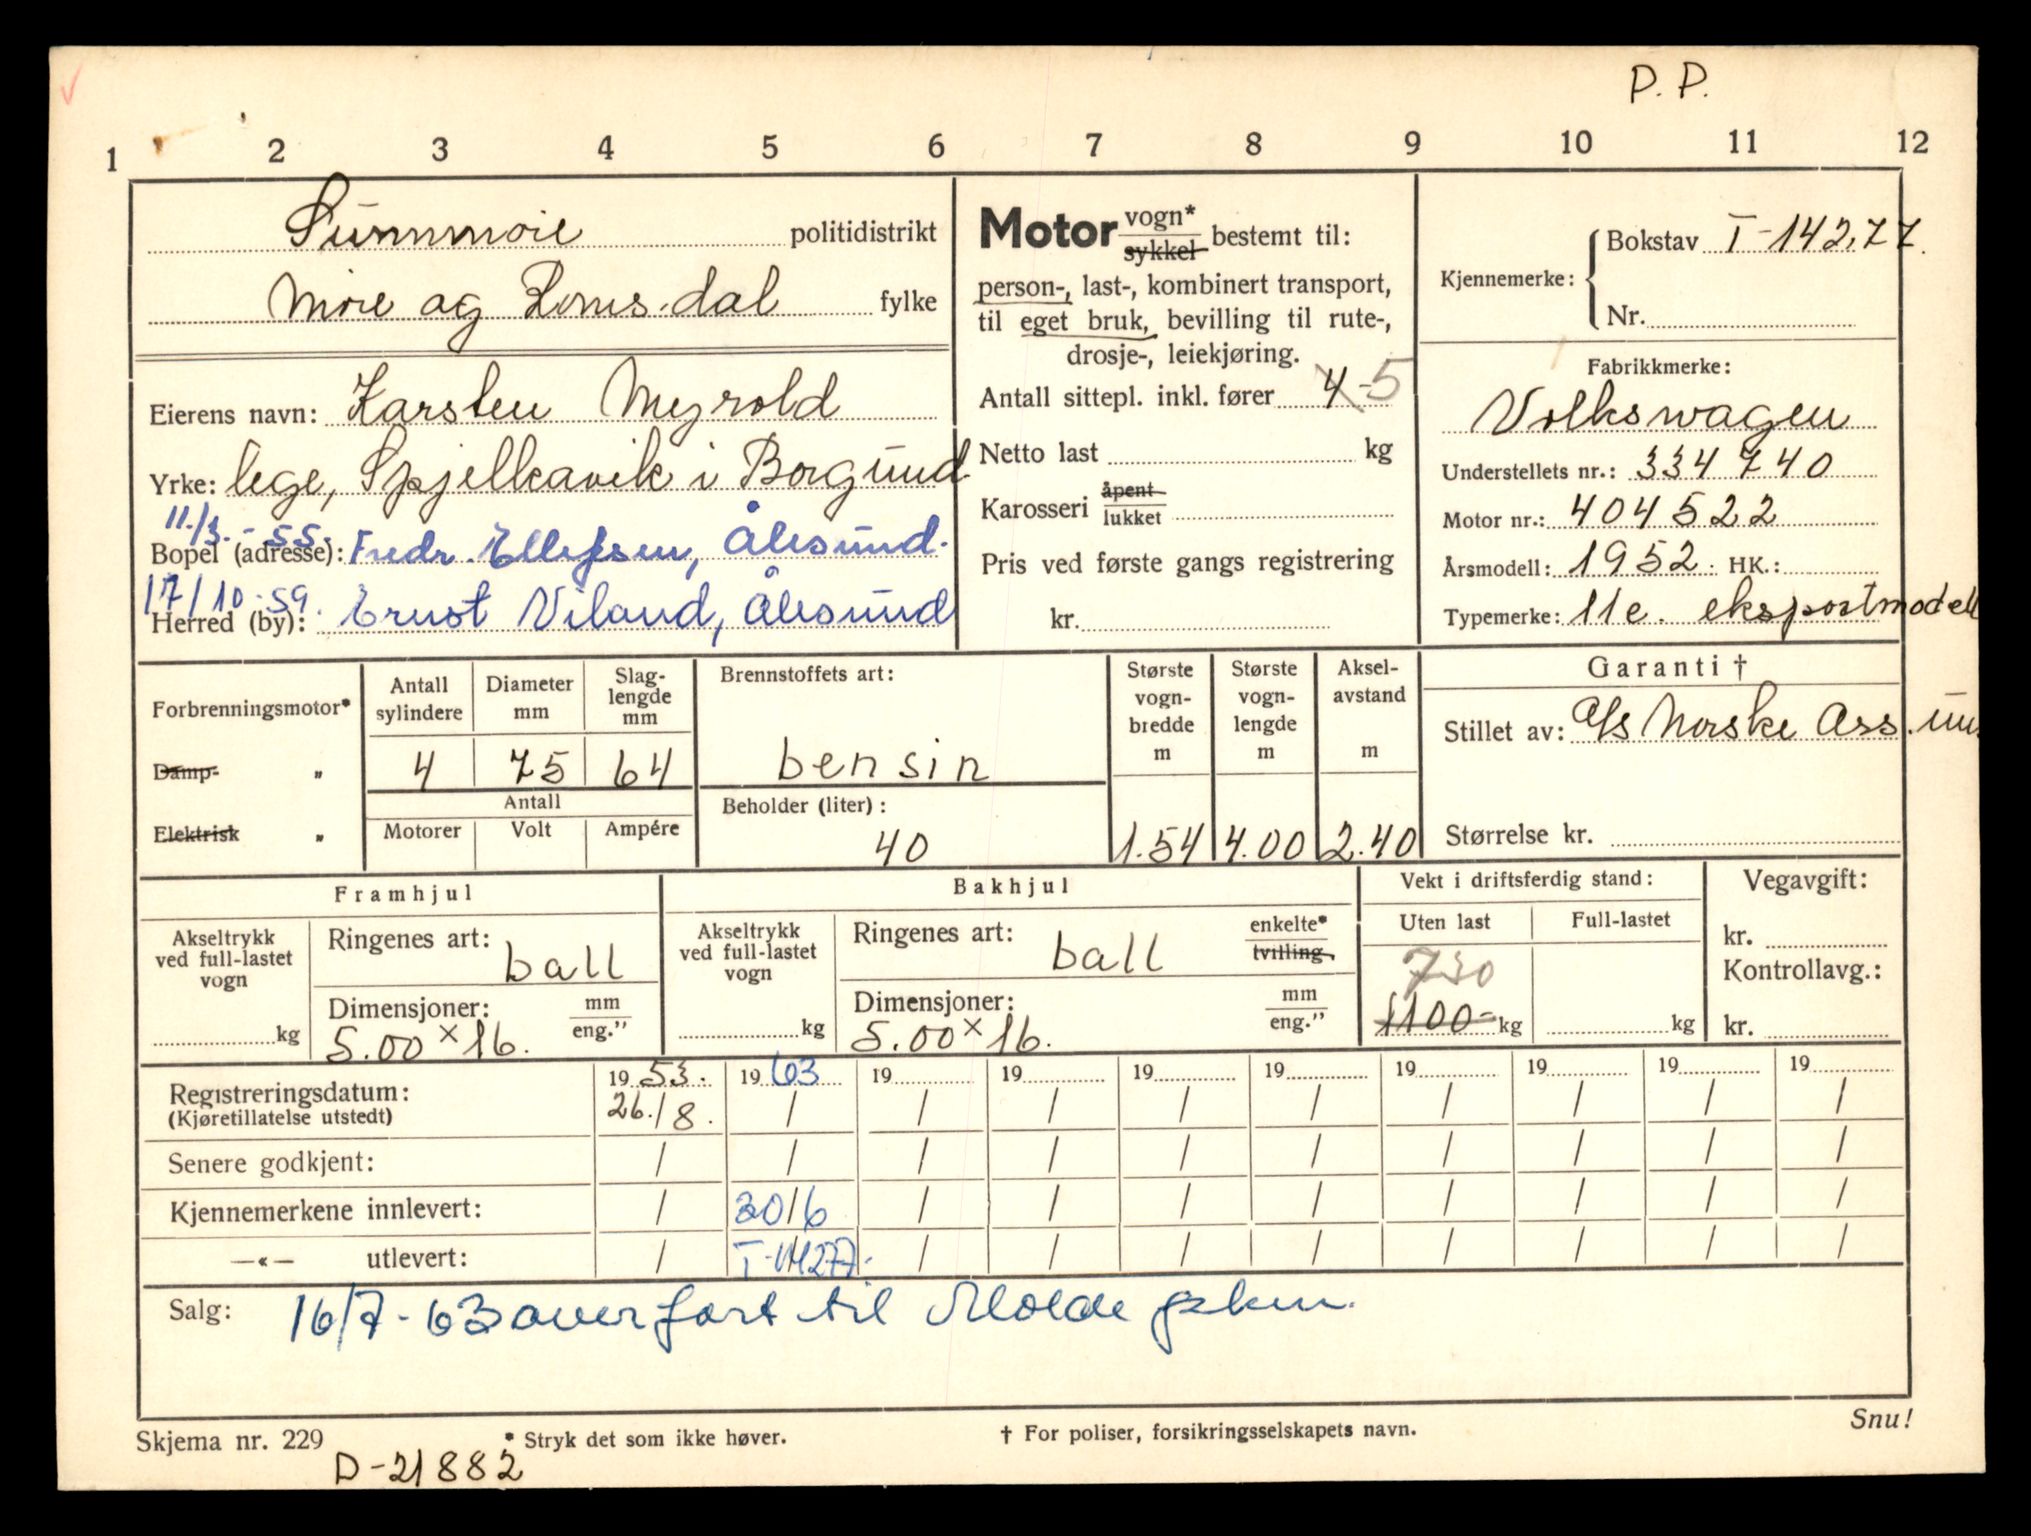 P. P.
1 2 3 4 5 6 7 8 9 10 11 12
Sunnmøre politidistrikt
Møre og Romsdal fylke
Eierens navn: Karsten Myrold
Yrke: lege, Spjelkavik i Borgund
11/3.-55.
Bopel (adresse): Fredr. Ellefsen, Ålesund.
17/10-59.
Herred (by): Ernst Viland, Ålesund
Motor vogn* sykkel bestemt til:
person-, last-, kombinert transport,
til eget bruk, bevilling til rute-,
drosje-, leiekjøring.
Antall sittepl. inkl. fører 4 - 5
Netto last kg
Karosseri åpent lukket
Pris ved første gangs registrering
kr.
Kjennemerke: Bokstav T-142,77.
Nr.
Fabrikkmerke:
Volkswagen
Understellets nr.: 334740
Motor nr.: 404522
Årsmodell: 1952. HK.:
Typemerke: 11e. eksportmodell
Forbrenningsmotor*
Damp- "
Elektrisk "
Antall sylindere
Diameter mm
Slag-lengde mm
4 75 64
Antall
Motorer Volt Ampére
Brennstoffets art:
bensin
Beholder (liter):
40
Største vogn-bredde m
Største vogn-lengde m
Aksel-avstand m
1.54 4.00 2.40
Garanti †
Stillet av: A/S Norske Ass.
Størrelse kr.
Framhjul
Akseltrykk
ved full-lastet
vogn
kg
Ringenes art: ball
Dimensjoner: mm eng."
5.00 x 16.
Bakhjul
Akseltrykk
ved full-lastet
vogn
kg
Ringenes art: ball enkelte* tvilling.
Dimensjoner: mm eng."
5.00 x 16.
Vekt i driftsferdig stand:
Uten last Full-lastet
730
1100- kg kg
Vegavgift:
kr.
Kontrollavg.:
kr.
19 53. 19 63 19 19 19 19 19 19 19 19
Registreringsdatum: 26./8. / / / / / / / / /
(Kjøretillatelse utstedt)
Senere godkjent: / / / / / / / / / /
Kjennemerkene innlevert: / 30/6 / / / / / / / /
—«— utlevert: / T-14277. / / / / / / / /
Salg: 16/7-63 overført til Molde pkm.
Skjema nr. 229 * Stryk det som ikke høver. † For poliser, forsikringsselskapets navn. Snu!
D-21882